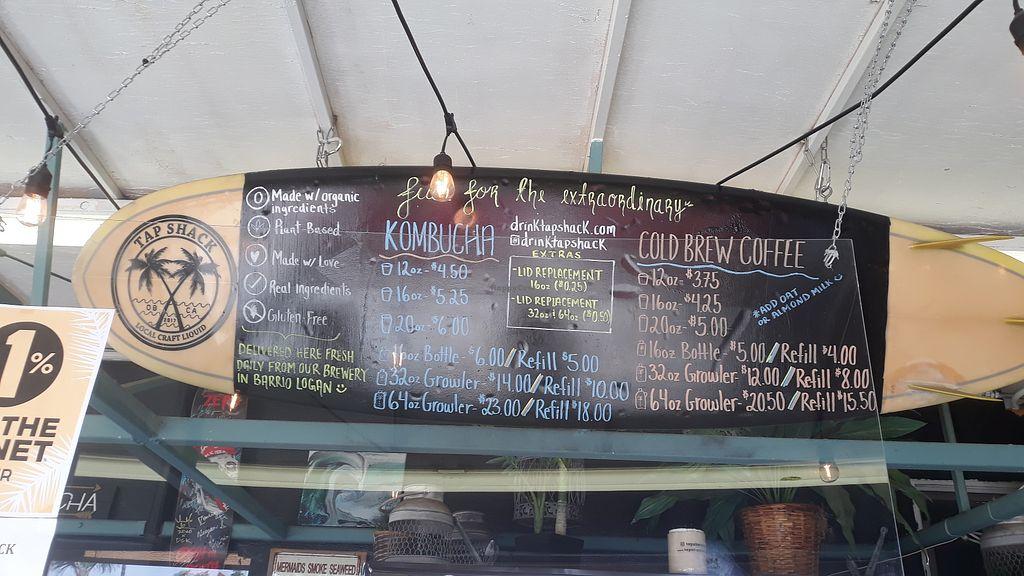 TAP SHACK
OB CA
2017
LOCAL CRAFT LIQUID
Made w/organic
ingredients
Plant Based
Made w/ Love
Real ingredients
Gluten Free
DELIVERED HERE FRESH
DAILY FROM OUR BREWERY
IN BARRIO LOGAN
for the extraordinary
KOMBUCHA
12oz-$4.50
16oz-$5.25
20oz-$6.00
16oz Bottle-$6.00/Refill $5.00
32oz Growler-$14.00/Refill $10.00
64oz Growler-$23.00/Refill $18.00
drinktapshack.com
@drinktapshack
EXTRAS
-LID REPLACEMENT
16oz ($0.25)
-LID REPLACEMENT
32oz & 64oz ($0.50)
COLD BREW COFFEE
12oz-$3.75
16oz-$4.25
20oz-$5.00
*ADD OAT
OR ALMOND MILK
16oz Bottle-$5.00/Refill $4.00
32oz Growler-$12.00/Refill $8.00
64oz Growler-$20.50/Refill $15.50
1%
THE
NET
R
CHA
CK
MERMAIDS SMOKE SEAWEED